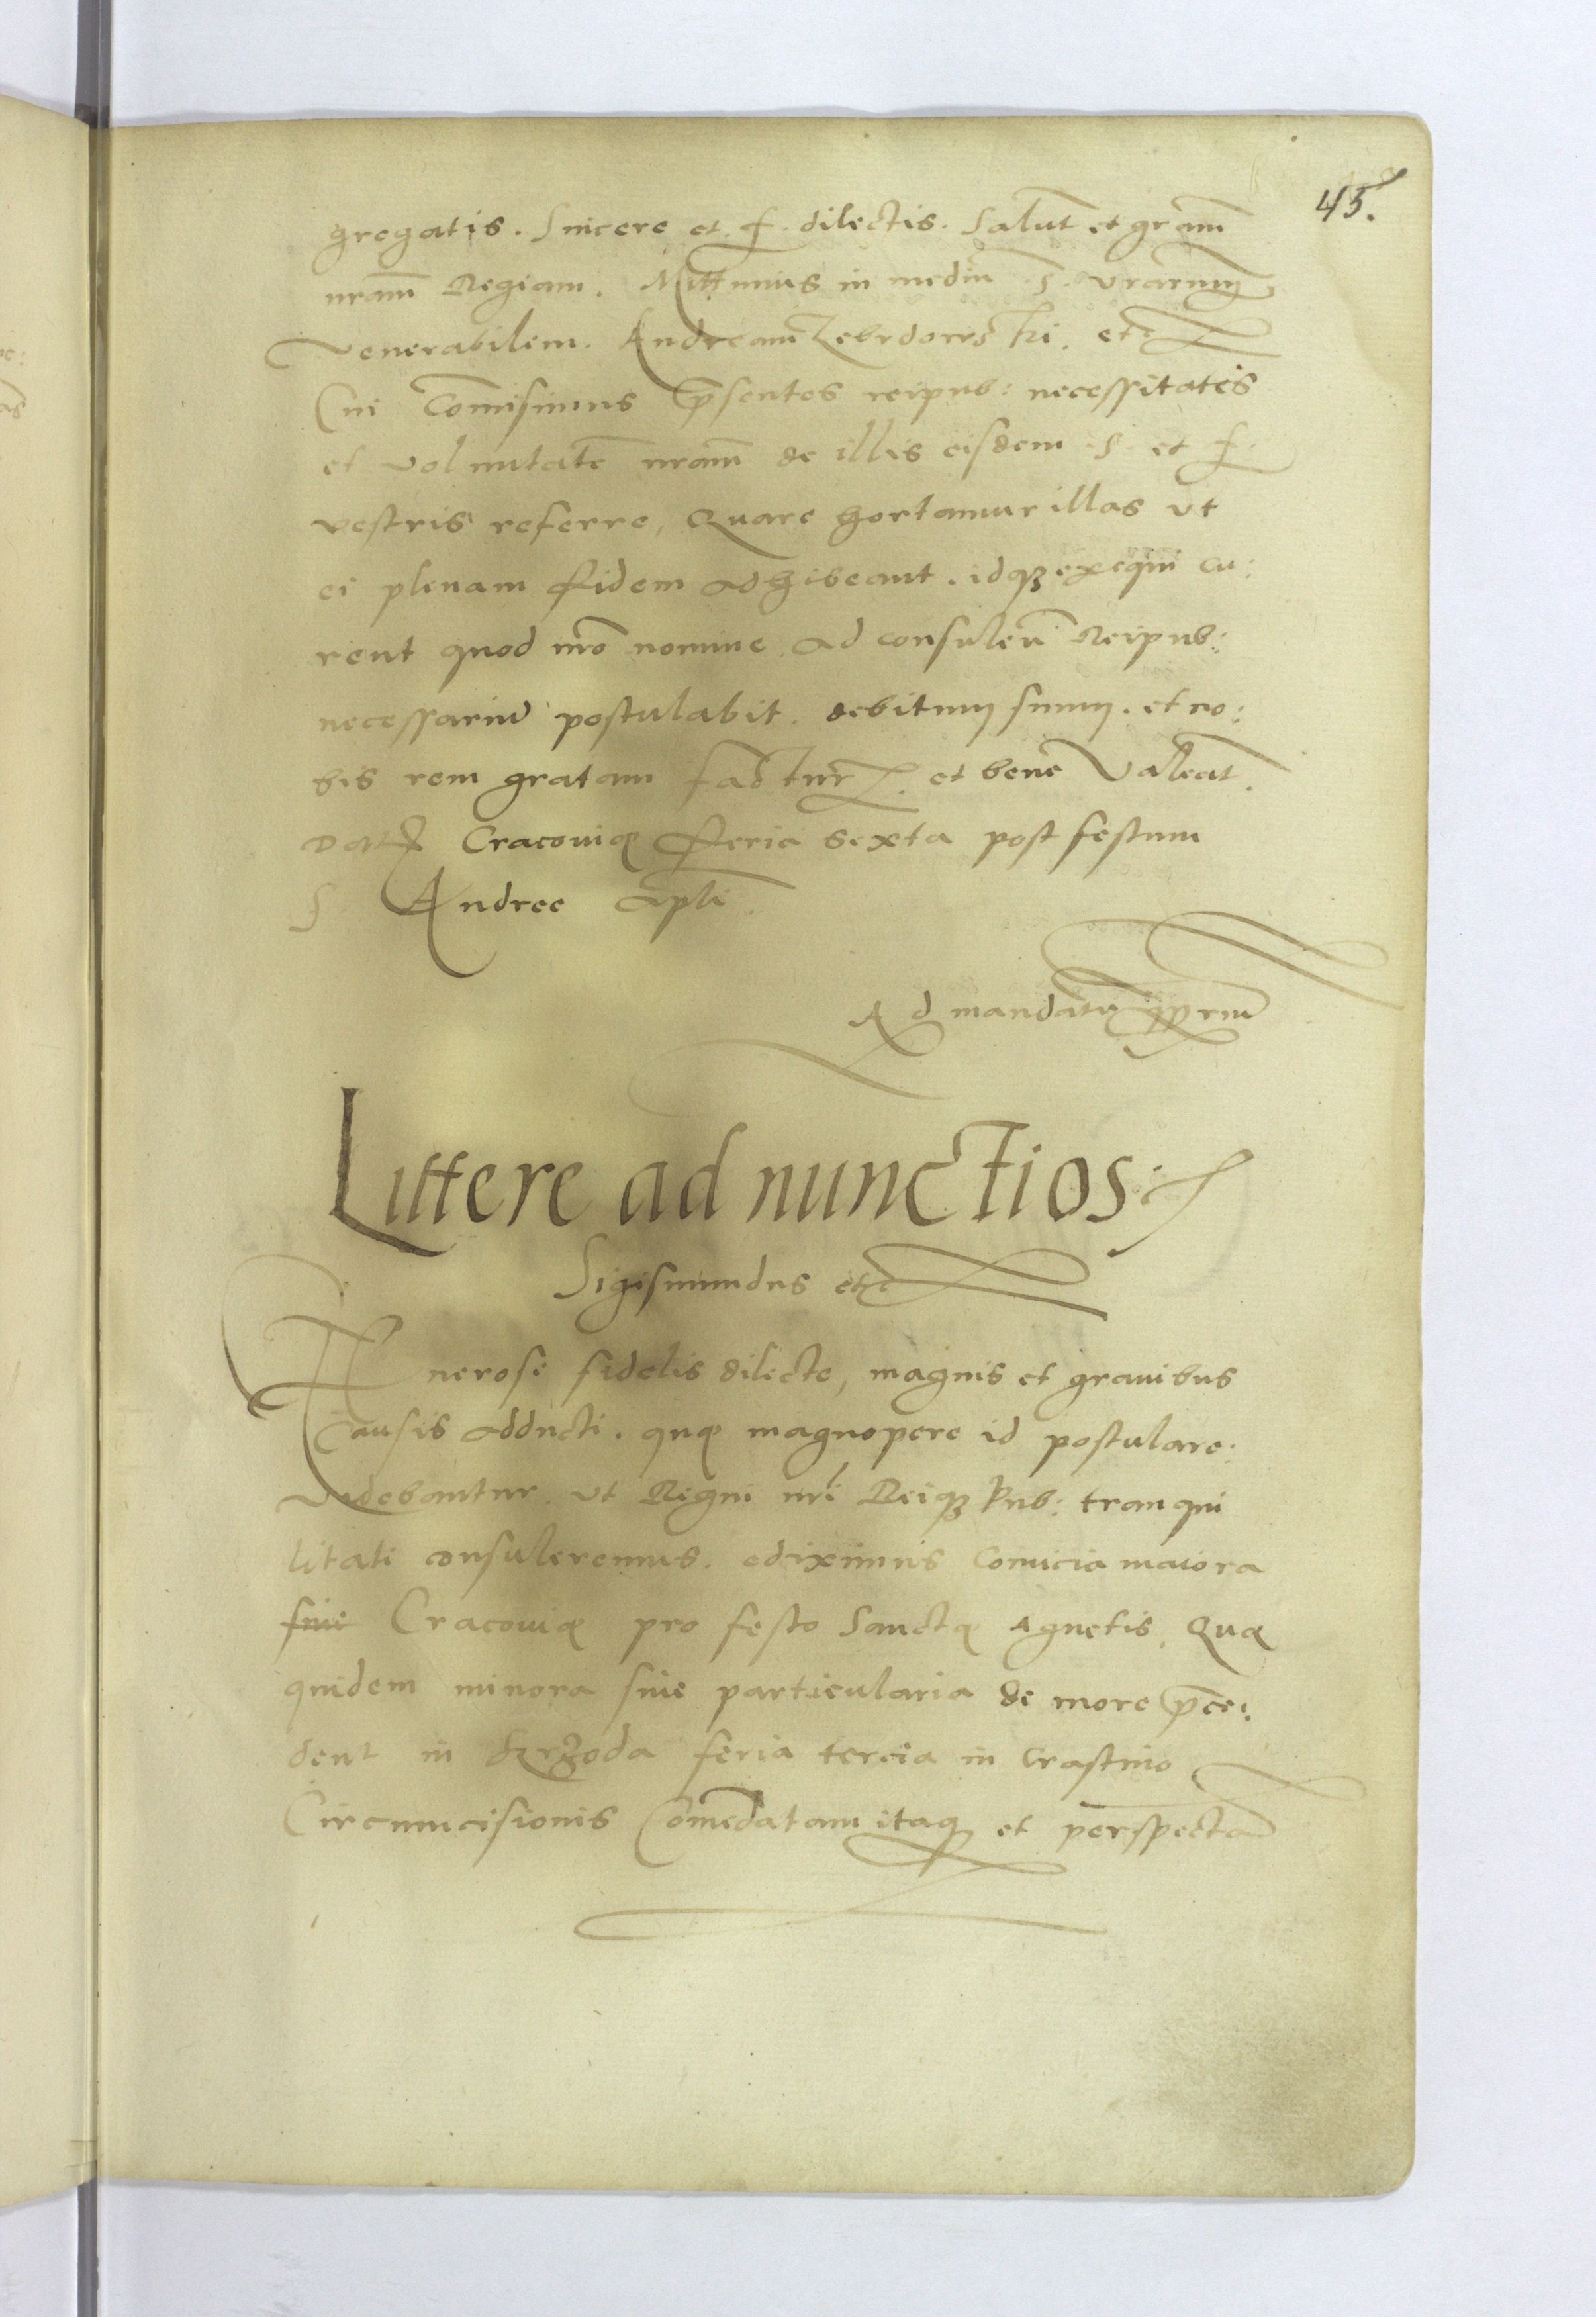 45.
gregatis. Sincere et. f. dilectis. Salut̄ et gram̄
nram̄ Regiam. Mittimus in mediū S. vrarum
venerabilem. Andream Zebrdowski. etc
Cui Com̄isimus p̄sentes reipub: necessitates
et voluntatē nram̄ de illis eisdem S. et f.
vestris referre, Quare hortamur illas ut
ei plenam fidem adhibeant. idq3 exequi cu:
rent quod nrō nomine ad consulen̄ Reipub:
necessariū postulabit. debitum suum. et no:
bis rem gratam factur̄. et bene Valeat̄.
Dat Cracouię feria Sexta post festum
S. Andree Apl̄i
Ad mandatū ppriū
Littere ad nunctios:
Sigismundus etc
Generose fidelis dilecte, magnis et grauibus
causis adducti. quę magnopere id postulare:
videbantur. ut Regni nrī Reiq3 Pub: tranqui
litati consuleremus. ediximus Comicia maiora
siue Cracouię pro festo Sanctę Agnetis, Quę
quidem minora siue particularia de more p̄ce:
dent in Srzoda feria tercia in Crastino
Circumcisionis Com̄edatam itaq3 et perspectā